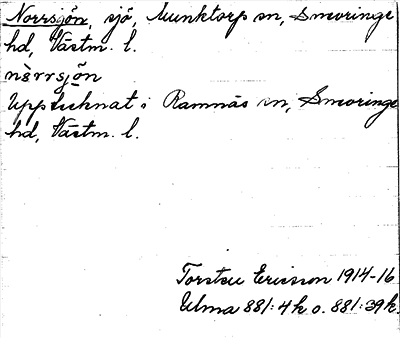 Norrsjön, sjö, Munktorp sn, Snevringe
hd, Västm. l.
nòrrsjön
Upptecknat i Ramnäs sn, Snevringe
hd, Västm. l.
Torsten Ericsson 1914-16
Ulma 881:4k o. 881:39k.